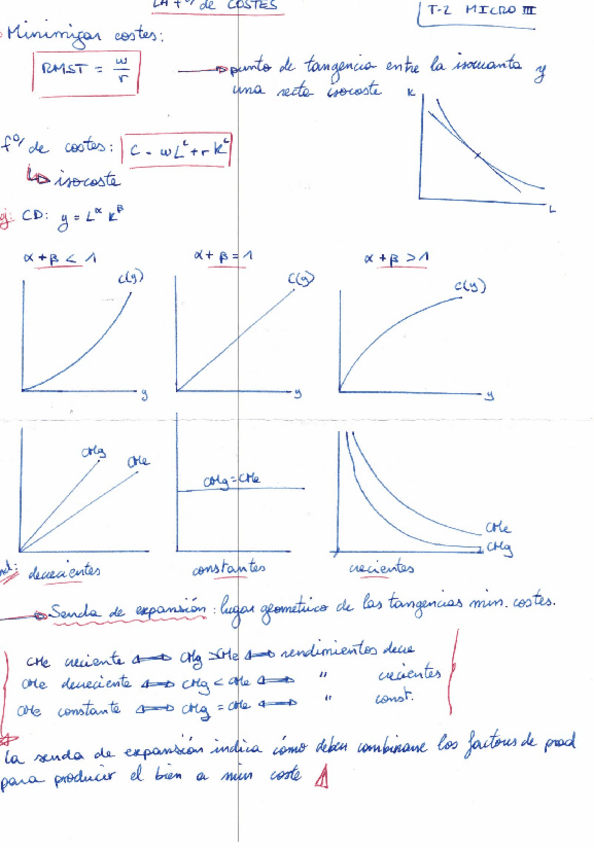 LA f^o/ de COSTES
T-2 MICRO III
Minimizar costes:
RMST = w/r → punto de tangencia entre la isocuanta y
una recta isocoste
K
L
f^o/ de costes: C = wL^c + rK^c
↳ isocoste
CD: y = L^α K^β
α + β < 1
α + β = 1
α + β > 1
C(y)
C(y)
C(y)
y
y
y
CMg
CMe
CMg = CMe
CMe
CMg
decrecientes
constantes
crecientes
→ Senda de expansión: lugar geométrico de las tangencias min. costes.
CMe creciente ⟺ CMg > CMe ⟺ rendimientos decre
CMe decreciente ⟺ CMg < CMe ⟺ " crecientes
CMe constante ⟺ CMg = CMe ⟺ " const.
La senda de expansión indica cómo deben combinarse los factores de prod
para producir el bien a min coste